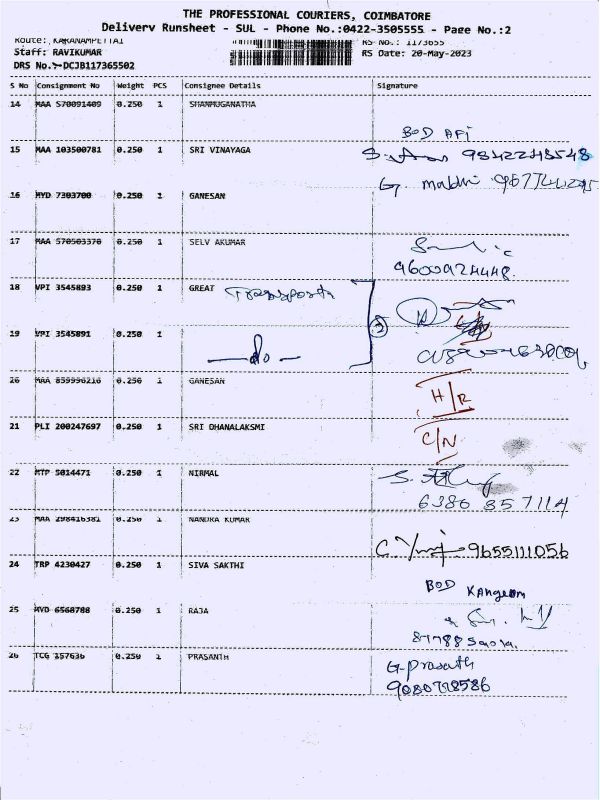 THE PROFESSIONAL COURIERS, COIMBATORE
Delivery Runsheet - SUL - Phone No.:0422-3505555 - Page No.:2
Route: KAKANAMPETTAI RS No.: 1173655
Staff: RAVIKUMAR RS Date: 20-May-2023
DRS No.:-DCJB117365502
S No Consignment No Weight PCS Consignee Details Signature
14 MAA 570091409 0.250 1 SHANMUGANATHA
BOD API
15 MAA 103500781 0.250 1 SRI VINAYAGA 9842248548
G.
16 HYD 7303700 0.250 1 GANESAN
17 MAA 570503370 0.250 1 SELV AKUMAR
9600924448.
18 VPI 3545893 0.250 1 GREAT Transports
19 VPI 3545891 0.250 1
do
20 MAA 859996216 0.250 1 GANESAN H/R
21 PLI 200247697 0.250 1 SRI DHANALAKSMI C/N
22 MTP 5014471 0.250 1 NIRMAL
6380 857114
23 MAA 298416381 0.250 1 NANDRA KUMAR
9655111056
24 TRP 4230427 0.250 1 SIVA SAKTHI
BOD Kangeom
25 HYD 6568788 0.250 1 RAJA
26 TCG 157636 0.250 1 PRASANTH G. Prasath
9080728586